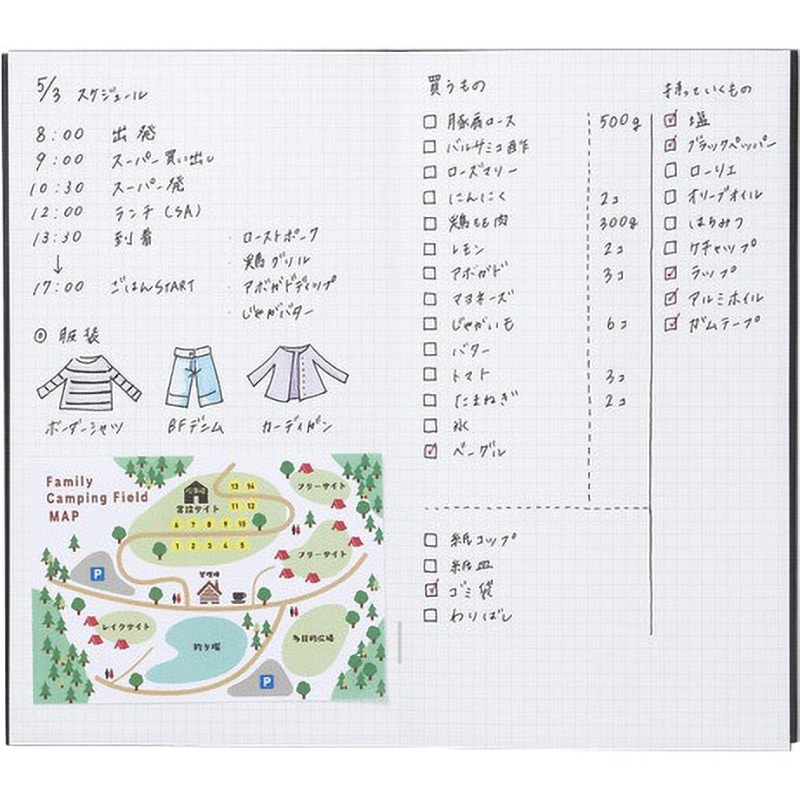 5/3 スケジュール
8:00 出発
9:00 スーパー買い出し
10:30 スーパー発
12:00 ランチ(SA)
13:30 到着
↓
17:00 ごはんSTART
・ローストポーク
・鶏グリル
・アボガドディップ
・じゃがバター
◎ 服装
ボーダーシャツ
BFデニム
カーディガン
Family
Camping Field
MAP
常設サイト
13 14
11 12
6 7 8 9 10
1 2 3 4 5
フリーサイト
フリーサイト
P
管理棟
レイクサイト
釣り堀
多目的広場
P
買うもの
□ 豚肩ロース 500g
□ バルサミコ酢
□ ローズマリー
□ にんにく 2コ
□ 鶏もも肉 300g
□ レモン 2コ
□ アボガド 3コ
□ マヨネーズ
□ じゃがいも 6コ
□ バター
□ トマト 3コ
□ たまねぎ 2コ
□ 氷
☑ ベーグル
□ 紙コップ
□ 紙皿
☑ ゴミ袋
□ わりばし
持っていくもの
☑ 塩
☑ ブラックペッパー
□ ローリエ
□ オリーブオイル
□ はちみつ
□ ケチャップ
☑ ラップ
☑ アルミホイル
☑ ガムテープ